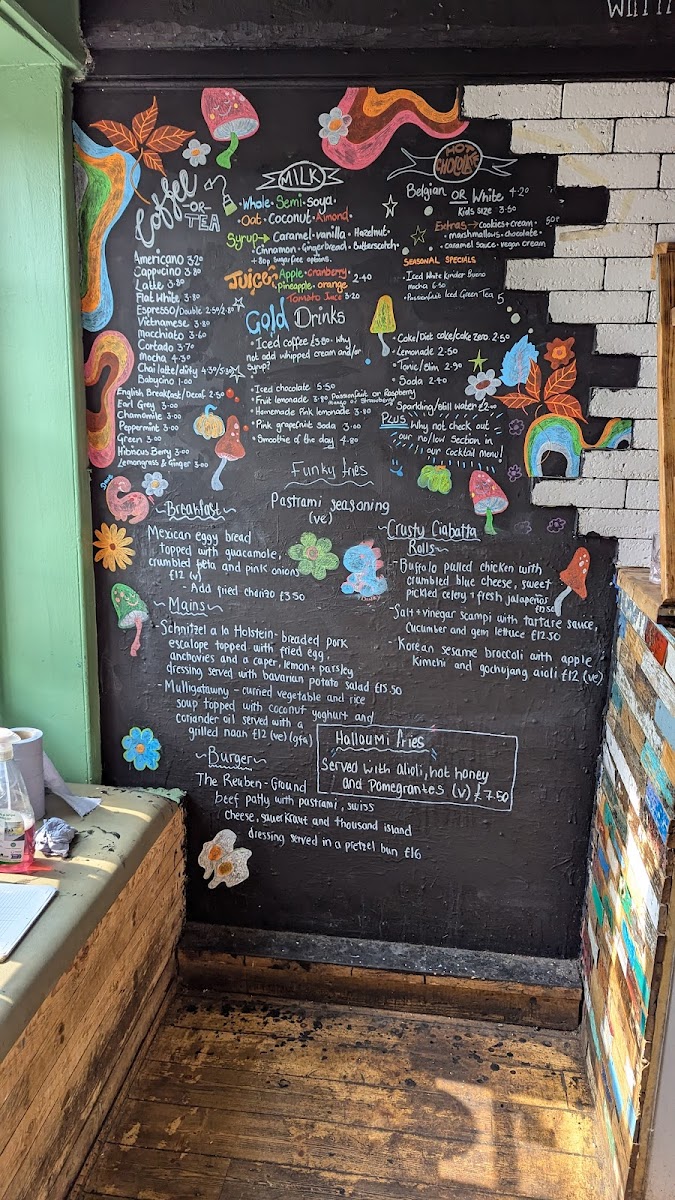 Coffee
OR
TEA
Americano 3·20
Cappucino 3·80
Latte 3·80
Flat White 3·80
Espresso/Double 2·50/2·80
Vietnamese 3·80
macchiato 3·60
Cortado 3·70
Mocha 4·30
Chai latte/dirty
Babycino 1·00
English Breakfast/Decaf 2·50
Earl Grey 3·00
Chamomile 3·00
Peppermint 3·00
Green 3·00
Hibiscus Berry 3·00
Lemongrass & Ginger 3·00
MILK
·Whole·Semi·Soya·
·Oat·Coconut·Almond·
Syrup→ Caramel·vanilla·Hazelnut·
·Cinnamon·Gingerbread·Butterscotch·
+ sugar free options.
Juice Apple·cranberry·
pineapple·orange 2·40
Tomato Juice 3·20
HOT
CHOCOLATE
Belgian OR White 4·20
Kids Size 3·50
Extras→ ·cookies+cream· 50p
·marshmallows·chocolate·
·caramel sauce·vegan cream
SEASONAL SPECIALS
·Iced White Kinder Bueno
mocha 6·50
·Passionfruit Iced Green Tea 5
Cold Drinks
·Iced coffee £3·80· Why
not add whipped cream and/or
syrup?
·Iced chocolate 5·50
·Fruit lemonade 3·90 Passionfruit or Raspberry
Mango or Strawberry
·Homemade Pink lemonade 3·80
·Pink grapefruit Soda 3·00
·Smoothie of the day 4·80
·Coke/Diet coke/coke zero 2·50
·Lemonade 2·50
·Tonic/Slim 2·90
·Soda 2·40
Sparkling/Still water £2·00
Plus Why not check out
our no/low section in
our cocktail menu!
Funky fries
Pastrami seasoning
(ve)
~Breakfast~
Mexican eggy bread
topped with guacamole,
crumbled feta and pink onions
£12 (v)
- Add fried chorizo £3.50
~Mains~
-Schnitzel a la Holstein- breaded pork
escalope topped with fried egg,
anchovies and a caper, lemon + parsley
dressing served with bavarian potato salad £15.50
-Mulligatawny - curried vegetable and rice
soup topped with coconut yoghurt and
coriander oil served with a
grilled naan £12 (ve)(gfa)
~Burger~
The Reuben-Ground
beef patty with pastrami, swiss
cheese, sauerkraut and thousand island
dressing served in a pretzel bun £16
~Crusty Ciabatta
Rolls~
-Buffalo pulled chicken with
crumbled blue cheese, sweet
pickled celery + fresh jalapeños
£12.50
-Salt + vinegar scampi with tartare sauce,
Cucumber and gem lettuce £12.50
-Korean sesame broccoli with apple
kimchi and gochujang aioli £12 (ve)
Halloumi fries
Served with alioli, hot honey
and Pomegranates (v) £7.50